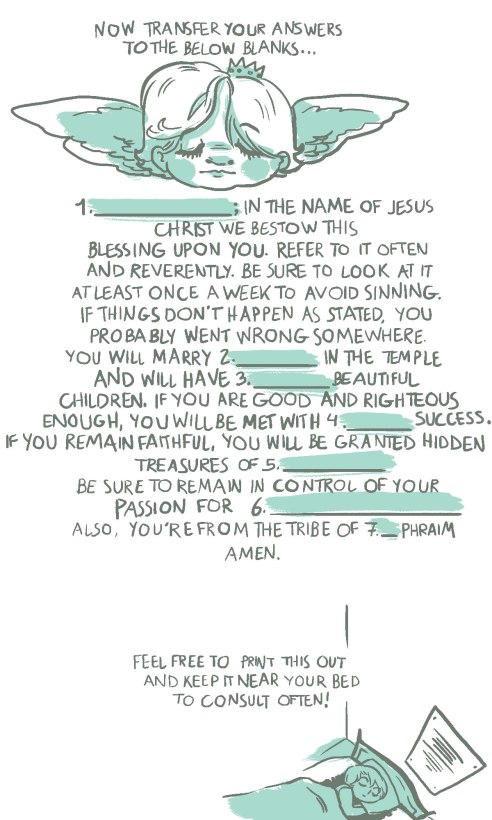 NOW TRANSFER YOUR ANSWERS
TO THE BELOW BLANKS...
1. ; IN THE NAME OF JESUS
CHRIST WE BESTOW THIS
BLESSING UPON YOU. REFER TO IT OFTEN
AND REVERENTLY. BE SURE TO LOOK AT IT
AT LEAST ONCE A WEEK TO AVOID SINNING.
IF THINGS DON'T HAPPEN AS STATED, YOU
PROBABLY WENT WRONG SOMEWHERE.
YOU WILL MARRY 2. IN THE TEMPLE
AND WILL HAVE 3. BEAUTIFUL
CHILDREN. IF YOU ARE GOOD AND RIGHTEOUS
ENOUGH, YOU WILL BE MET WITH 4. SUCCESS.
IF YOU REMAIN FAITHFUL, YOU WILL BE GRANTED HIDDEN
TREASURES OF 5.
BE SURE TO REMAIN IN CONTROL OF YOUR
PASSION FOR 6.
ALSO, YOU'RE FROM THE TRIBE OF 7. PHRAIM
AMEN.
FEEL FREE TO PRINT THIS OUT
AND KEEP IT NEAR YOUR BED
TO CONSULT OFTEN!